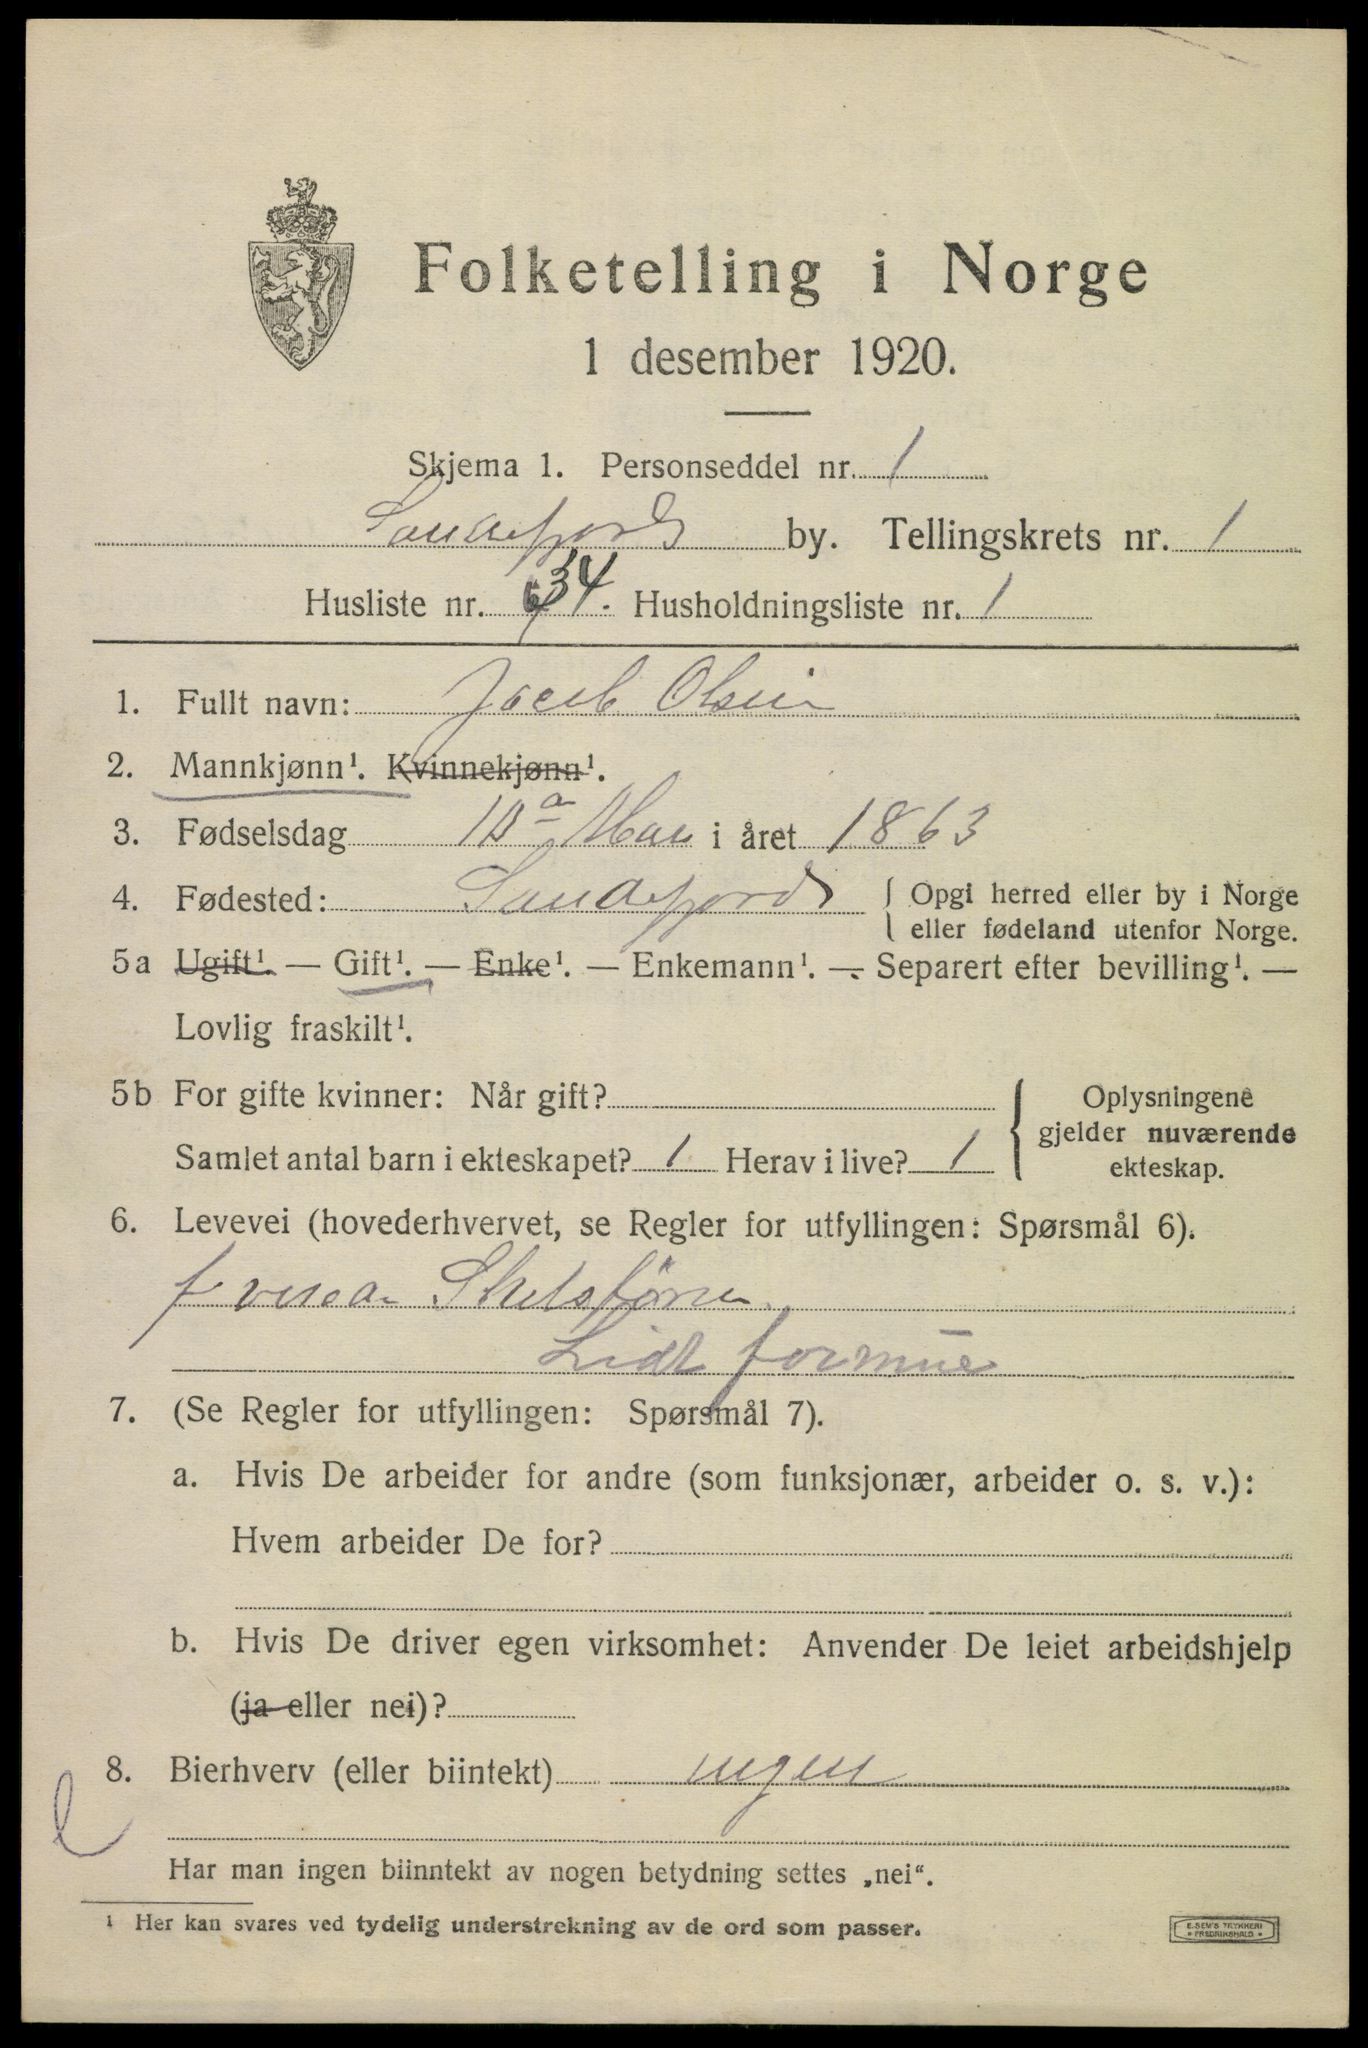 Folketelling i Norge
1 desember 1920.
Skjema 1. Personseddel nr. 1
Sandefjord by. Tellingskrets nr. 1
Husliste nr. 34. Husholdningsliste nr. 1
1. Fullt navn: Jacob Olsen
2. Mannkjønn¹. Kvinnekjønn¹.
3. Fødselsdag i året 1863
4. Fødested: Sandefjord { Opgi herred eller by i Norge
eller fødeland utenfor Norge.
5a Ugift¹. — Gift¹. — Enke¹. — Enkemann¹. — Separert efter bevilling¹. —
Lovlig fraskilt¹.
5b For gifte kvinner: Når gift? } Oplysningene
gjelder nuværende
ekteskap.
Samlet antal barn i ekteskapet? 1 Herav i live? 1
6. Levevei (hovederhvervet, se Regler for utfyllingen: Spørsmål 6).
f
Lidt formue
7. (Se Regler for utfyllingen: Spørsmål 7).
a. Hvis De arbeider for andre (som funksjonær, arbeider o. s. v.):
Hvem arbeider De for?
b. Hvis De driver egen virksomhet: Anvender De leiet arbeidshjelp
(ja eller nei)?
8. Bierhverv (eller biintekt) ingen
Har man ingen biinntekt av nogen betydning settes „nei“.
¹ Her kan svares ved tydelig understrekning av de ord som passer.
E. SEM'S TRYKKERI
* FREDRIKSHALD *